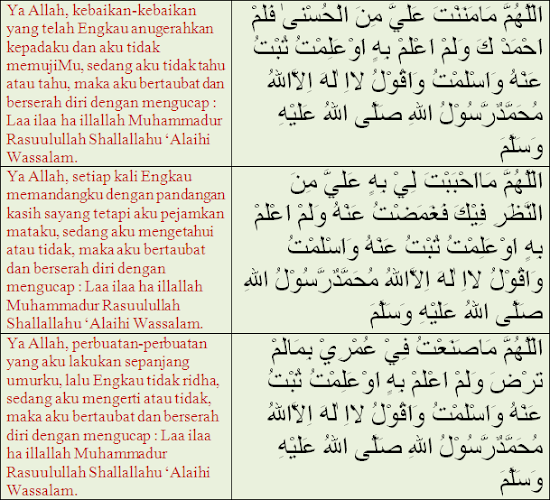 Ya Allah, kebaikan-kebaikan
yang telah Engkau anugerahkan
kepadaku dan aku tidak
memujiMu, sedang aku tidak tahu
atau tahu, maka aku bertaubat dan
berserah diri dengan mengucap :
Laa ilaa ha illallah Muhammadur
Rasuulullah Shallallahu ‘Alaihi
Wassalam.
اَللّٰهُمَّ مَامَنَنْتَ عَلَيَّ مِنَ الْحُسْنٰى فَلَمْ
اَحْمَدْ كَ وَلَمْ اَعْلَمْ بِهٖ اَوْعَلِمْتُ تُبْتُ
عَنْهُ وَاَسْلَمْتُ وَاَقُوْلُ لَااِ لٰهَ اِلَّااللهُ
مُحَمَّدٌرَّسُوْلُ اللهِ صَلَّى اللهُ عَلَيْهِ
وَسَلَّمَ
Ya Allah, setiap kali Engkau
memandangku dengan pandangan
kasih sayang tetapi aku pejamkan
mataku, sedang aku mengetahui
atau tidak, maka aku bertaubat
dan berserah diri dengan
mengucap : Laa ilaa ha illallah
Muhammadur Rasuulullah
Shallallahu ‘Alaihi Wassalam.
اَللّٰهُمَّ مَااَحْبَبْتَ لِيْ بِهٖ عَلَيَّ مِنَ
النَّظَرِ فِيْكَ فَغَمَضْتُ عَنْهُ وَلَمْ اَعْلَمْ
بِهٖ اَوْعَلِمْتُ تُبْتُ عَنْهُ وَاَسْلَمْتُ
وَاَقُوْلُ لَااِ لٰهَ اِلَّااللهُ مُحَمَّدٌرَّسُوْلُ اللهِ
صَلَّى اللهُ عَلَيْهِ وَسَلَّمَ
Ya Allah, perbuatan-perbuatan
yang aku lakukan sepanjang
umurku, lalu Engkau tidak ridha,
sedang aku mengerti atau tidak,
maka aku bertaubat dan berserah
diri dengan mengucap : Laa ilaa
ha illallah Muhammadur
Rasuulullah Shallallahu
‘Alaihi Wassalam.
اَللّٰهُمَّ مَاصَنَعْتُ فِيْ عُمْرِيْ بِمَالَمْ
تَرْضَ وَلَمْ اَعْلَمْ بِهٖ اَوْعَلِمْتُ تُبْتُ
عَنْهُ وَاَسْلَمْتُ وَاَقُوْلُ لَااِ لٰهَ اِلَّااللهُ
مُحَمَّدٌرَّسُوْلُ اللهِ صَلَّى اللهُ عَلَيْهِ
وَسَلَّمَ